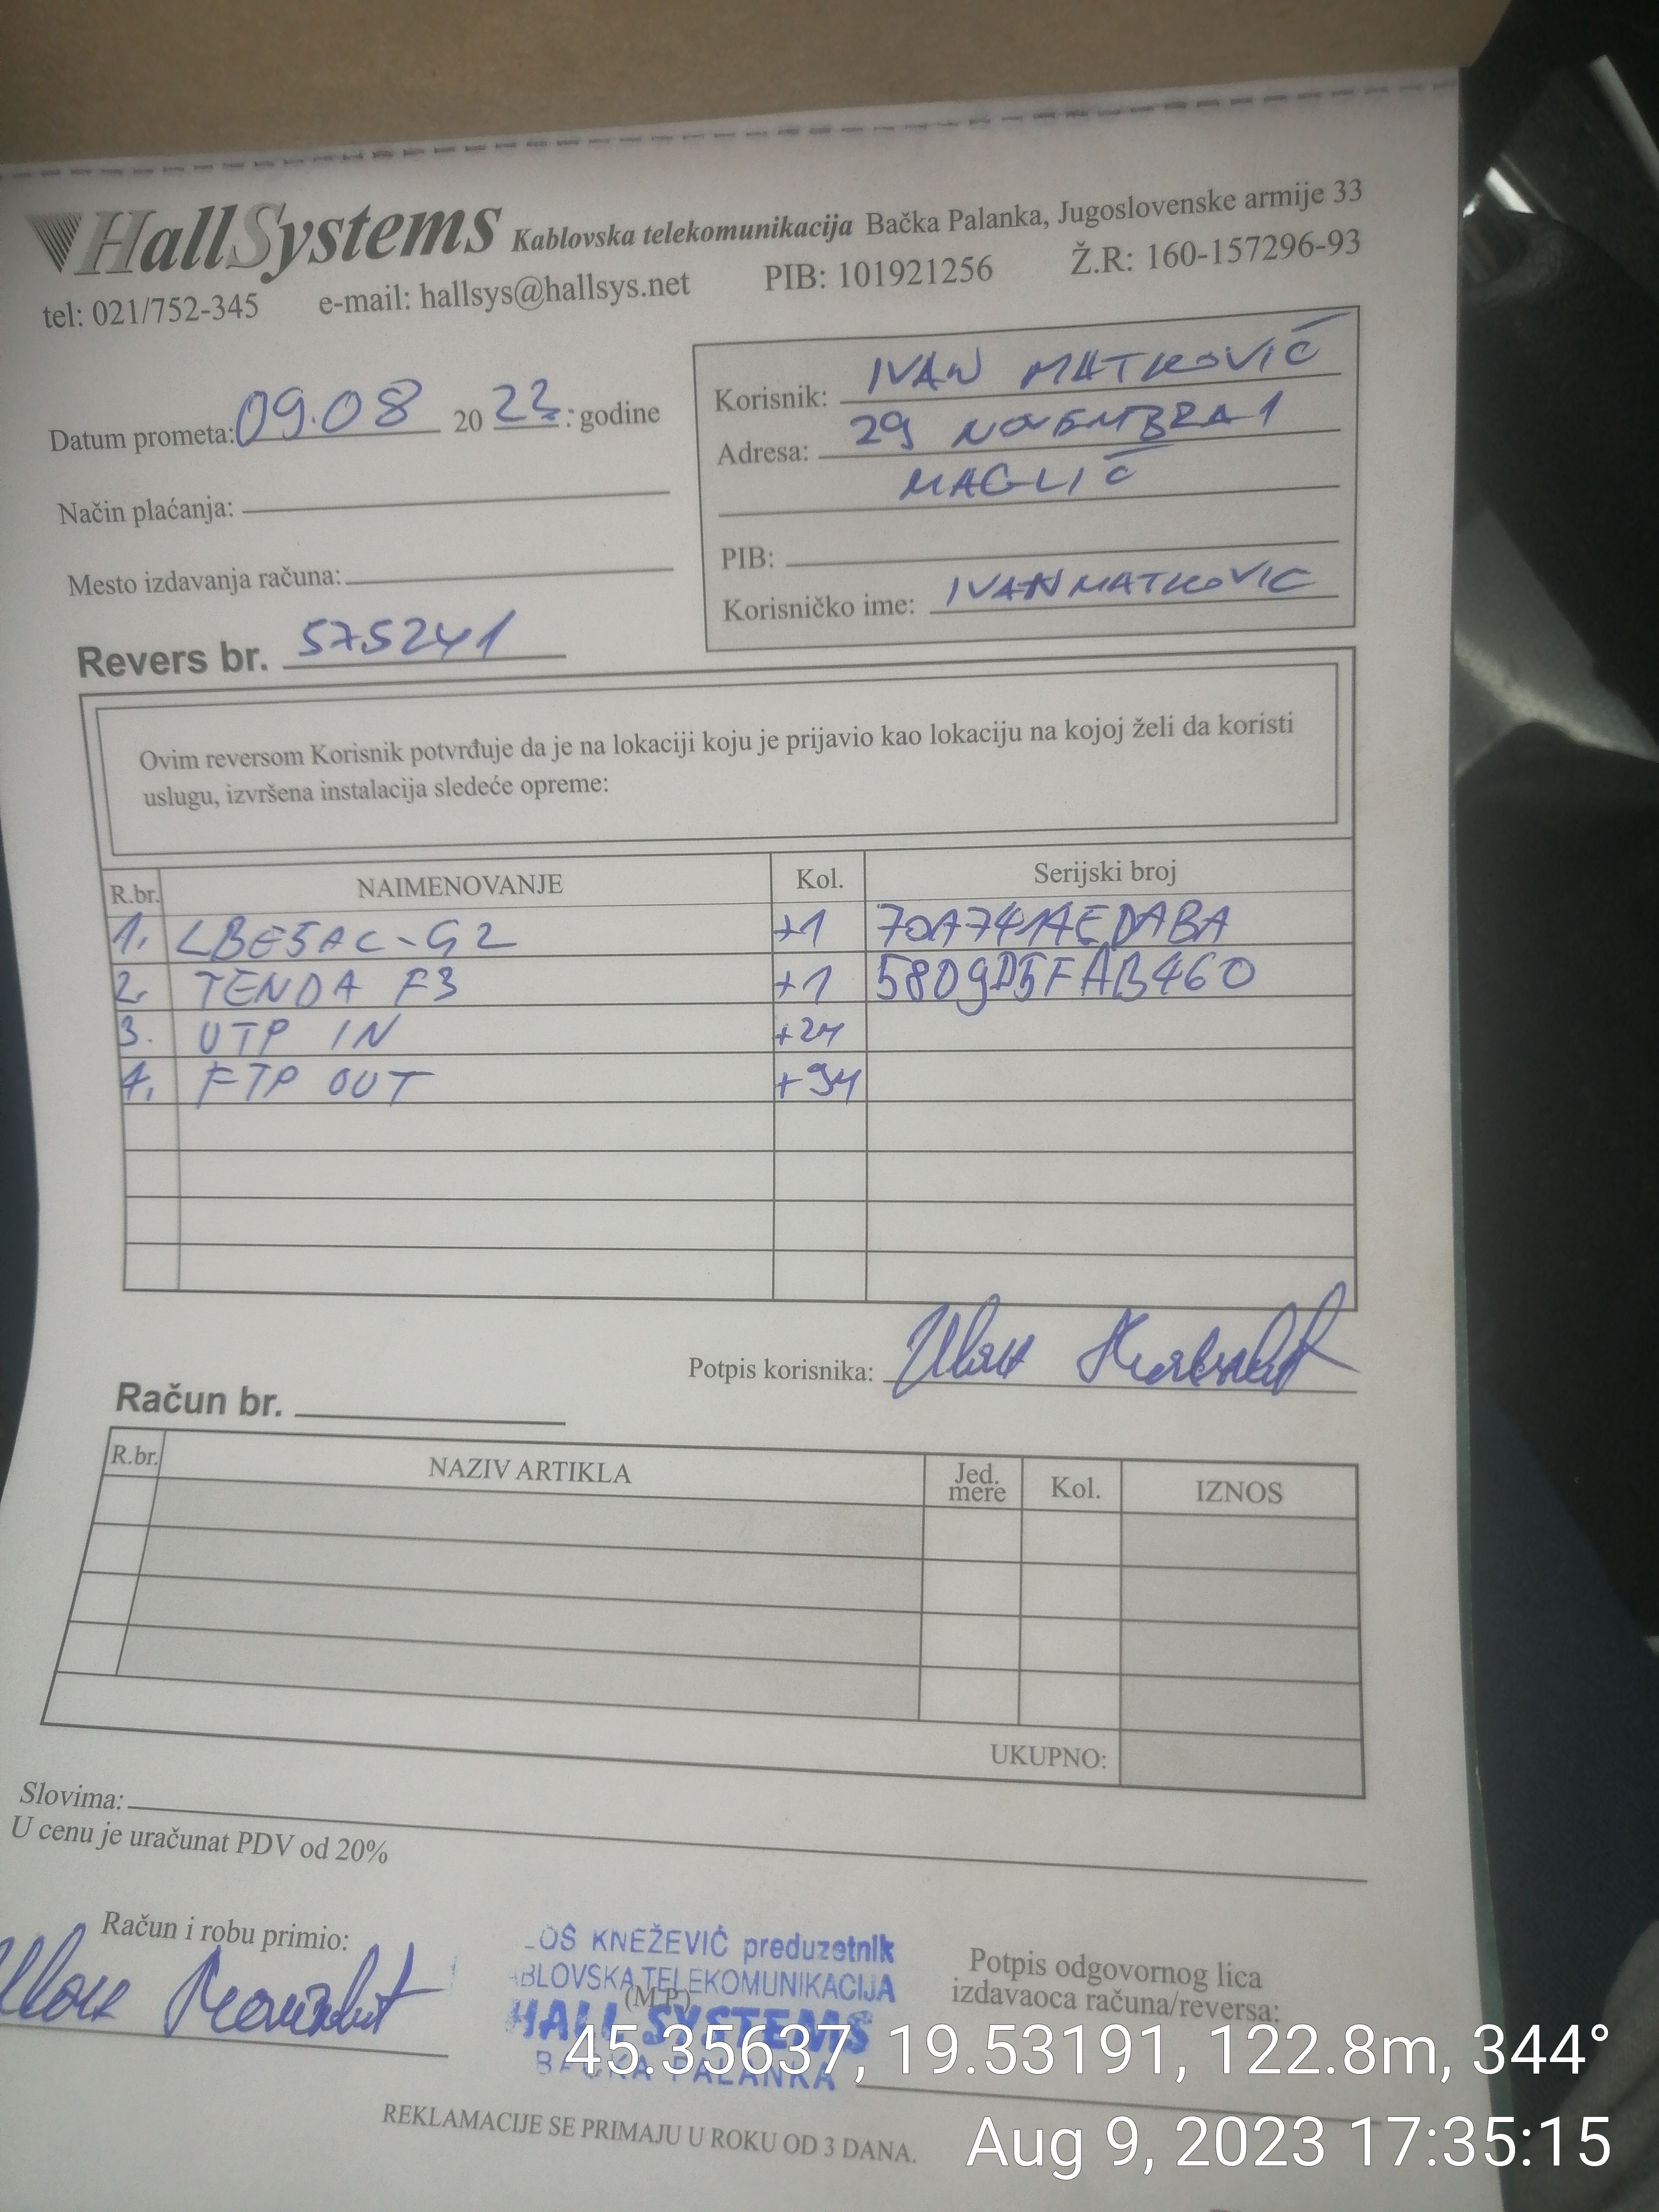 HallSystems Kablovska telekomunikacija Bačka Palanka, Jugoslovenske armije 33
tel: 021/752-345 e-mail: hallsys@hallsys.net PIB: 101921256 Ž.R: 160-157296-93
Datum prometa: 09.08 2023 : godine
Način plaćanja:
Mesto izdavanja računa:
Korisnik: IVAN MATKOVIĆ
Adresa: 29 NOVEMBRA 1
MAGLIĆ
PIB:
Korisničko ime: IVANMATKOVIC
Revers br. 575241
Ovim reversom Korisnik potvrđuje da je na lokaciji koju je prijavio kao lokaciju na kojoj želi da koristi
uslugu, izvršena instalacija sledeće opreme:
R.br. NAIMENOVANJE Kol. Serijski broj
1. LBE5AC-G2 +1 70A741AEDABA
2. TENDA F3 +1 5809D5FAB460
3. UTP IN
4. FTP OUT
Potpis korisnika:
Račun br.
R.br. NAZIV ARTIKLA Jed. mere Kol. IZNOS
UKUPNO:
Slovima:
U cenu je uračunat PDV od 20%
Račun i robu primio:
OŠ KNEŽEVIĆ preduzetnik
ABLOVSKA TELEKOMUNIKACIJA
(M.P.)
HALL SYSTEMS
BAČKA PALANKA
Potpis odgovornog lica
izdavaoca računa/reversa:
45.35637, 19.53191, 122.8m, 344°
REKLAMACIJE SE PRIMAJU U ROKU OD 3 DANA.
Aug 9, 2023 17:35:15